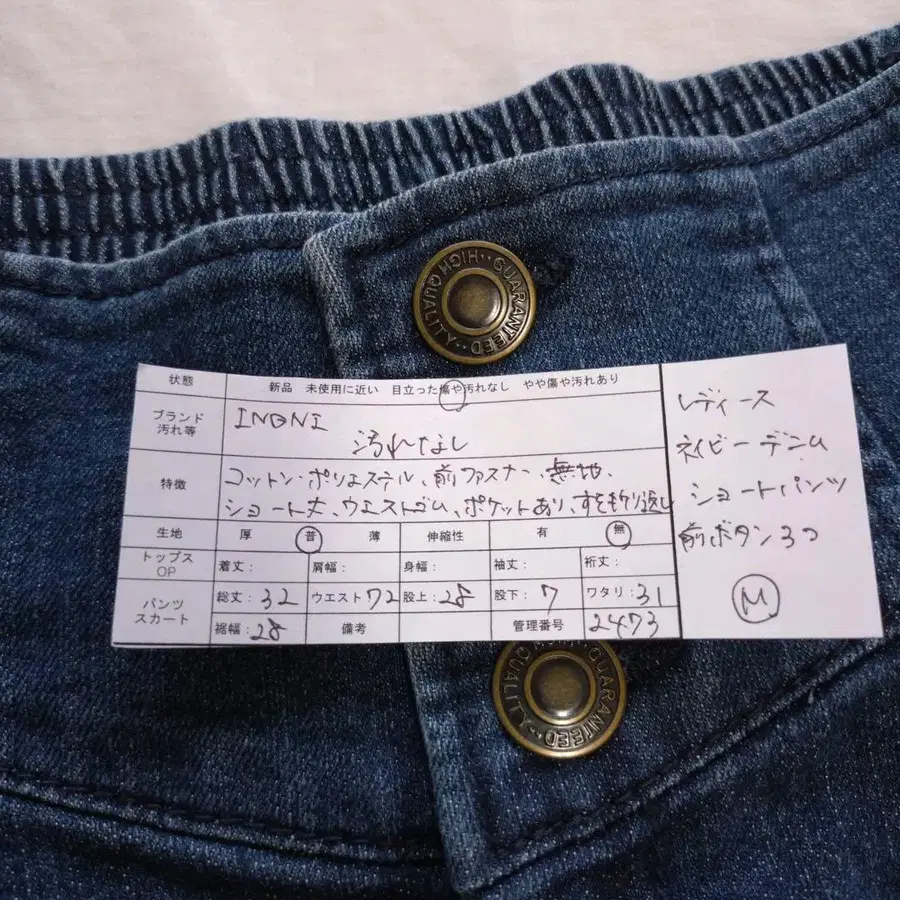 HIGH・・GUARANTEED・・QUALITY
状態 新品 未使用に近い 目立った傷や汚れなし やや傷や汚れあり
ブランド 汚れ等 INGNI 汚れなし
特徴 コットン・ポリエステル、前ファスナー、無地、
ショート丈、ウエストゴム、ポケットあり、すそ折り返し
生地 厚 普 薄 伸縮性 有 無
トップス OP 着丈: 肩幅: 身幅: 袖丈: 裄丈:
パンツ スカート 総丈:32 ウエスト72 股上:28 股下:7 ワタリ:31
裾幅:28 備考 管理番号 2473
レディース
ネイビー デニム
ショートパンツ
前ボタン3コ
M
HIGH GUARANTEED・・QUALITY